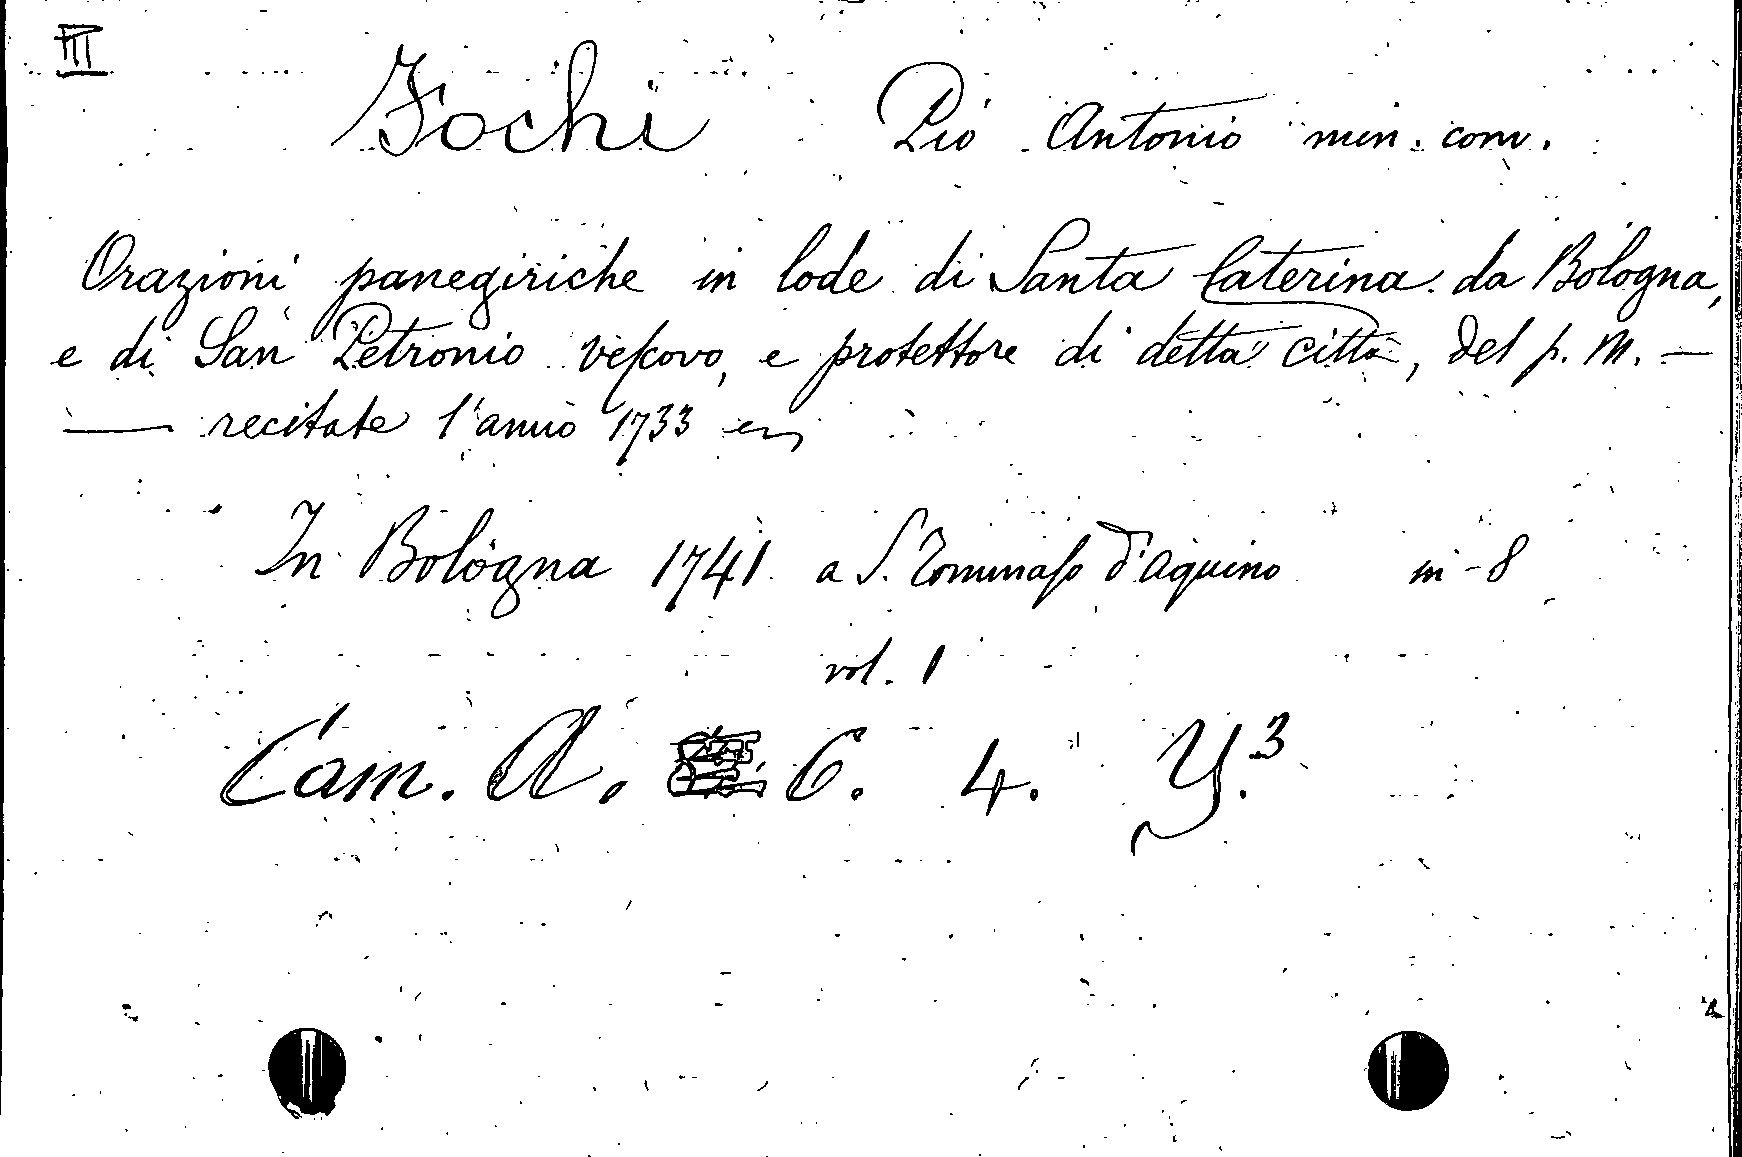 III
Fochi Pio Antonio min. conv.
Orazioni panegiriche in lode di Santa Caterina da Bologna,
e di San Petronio veſcovo, e protettore di detta città, del p. M. —
— recitate l'anno 1733
In Bologna 1741 a S. Tommaſo d'Aquino in-8
vol. 1
Cam. A. C. 4. Y.³